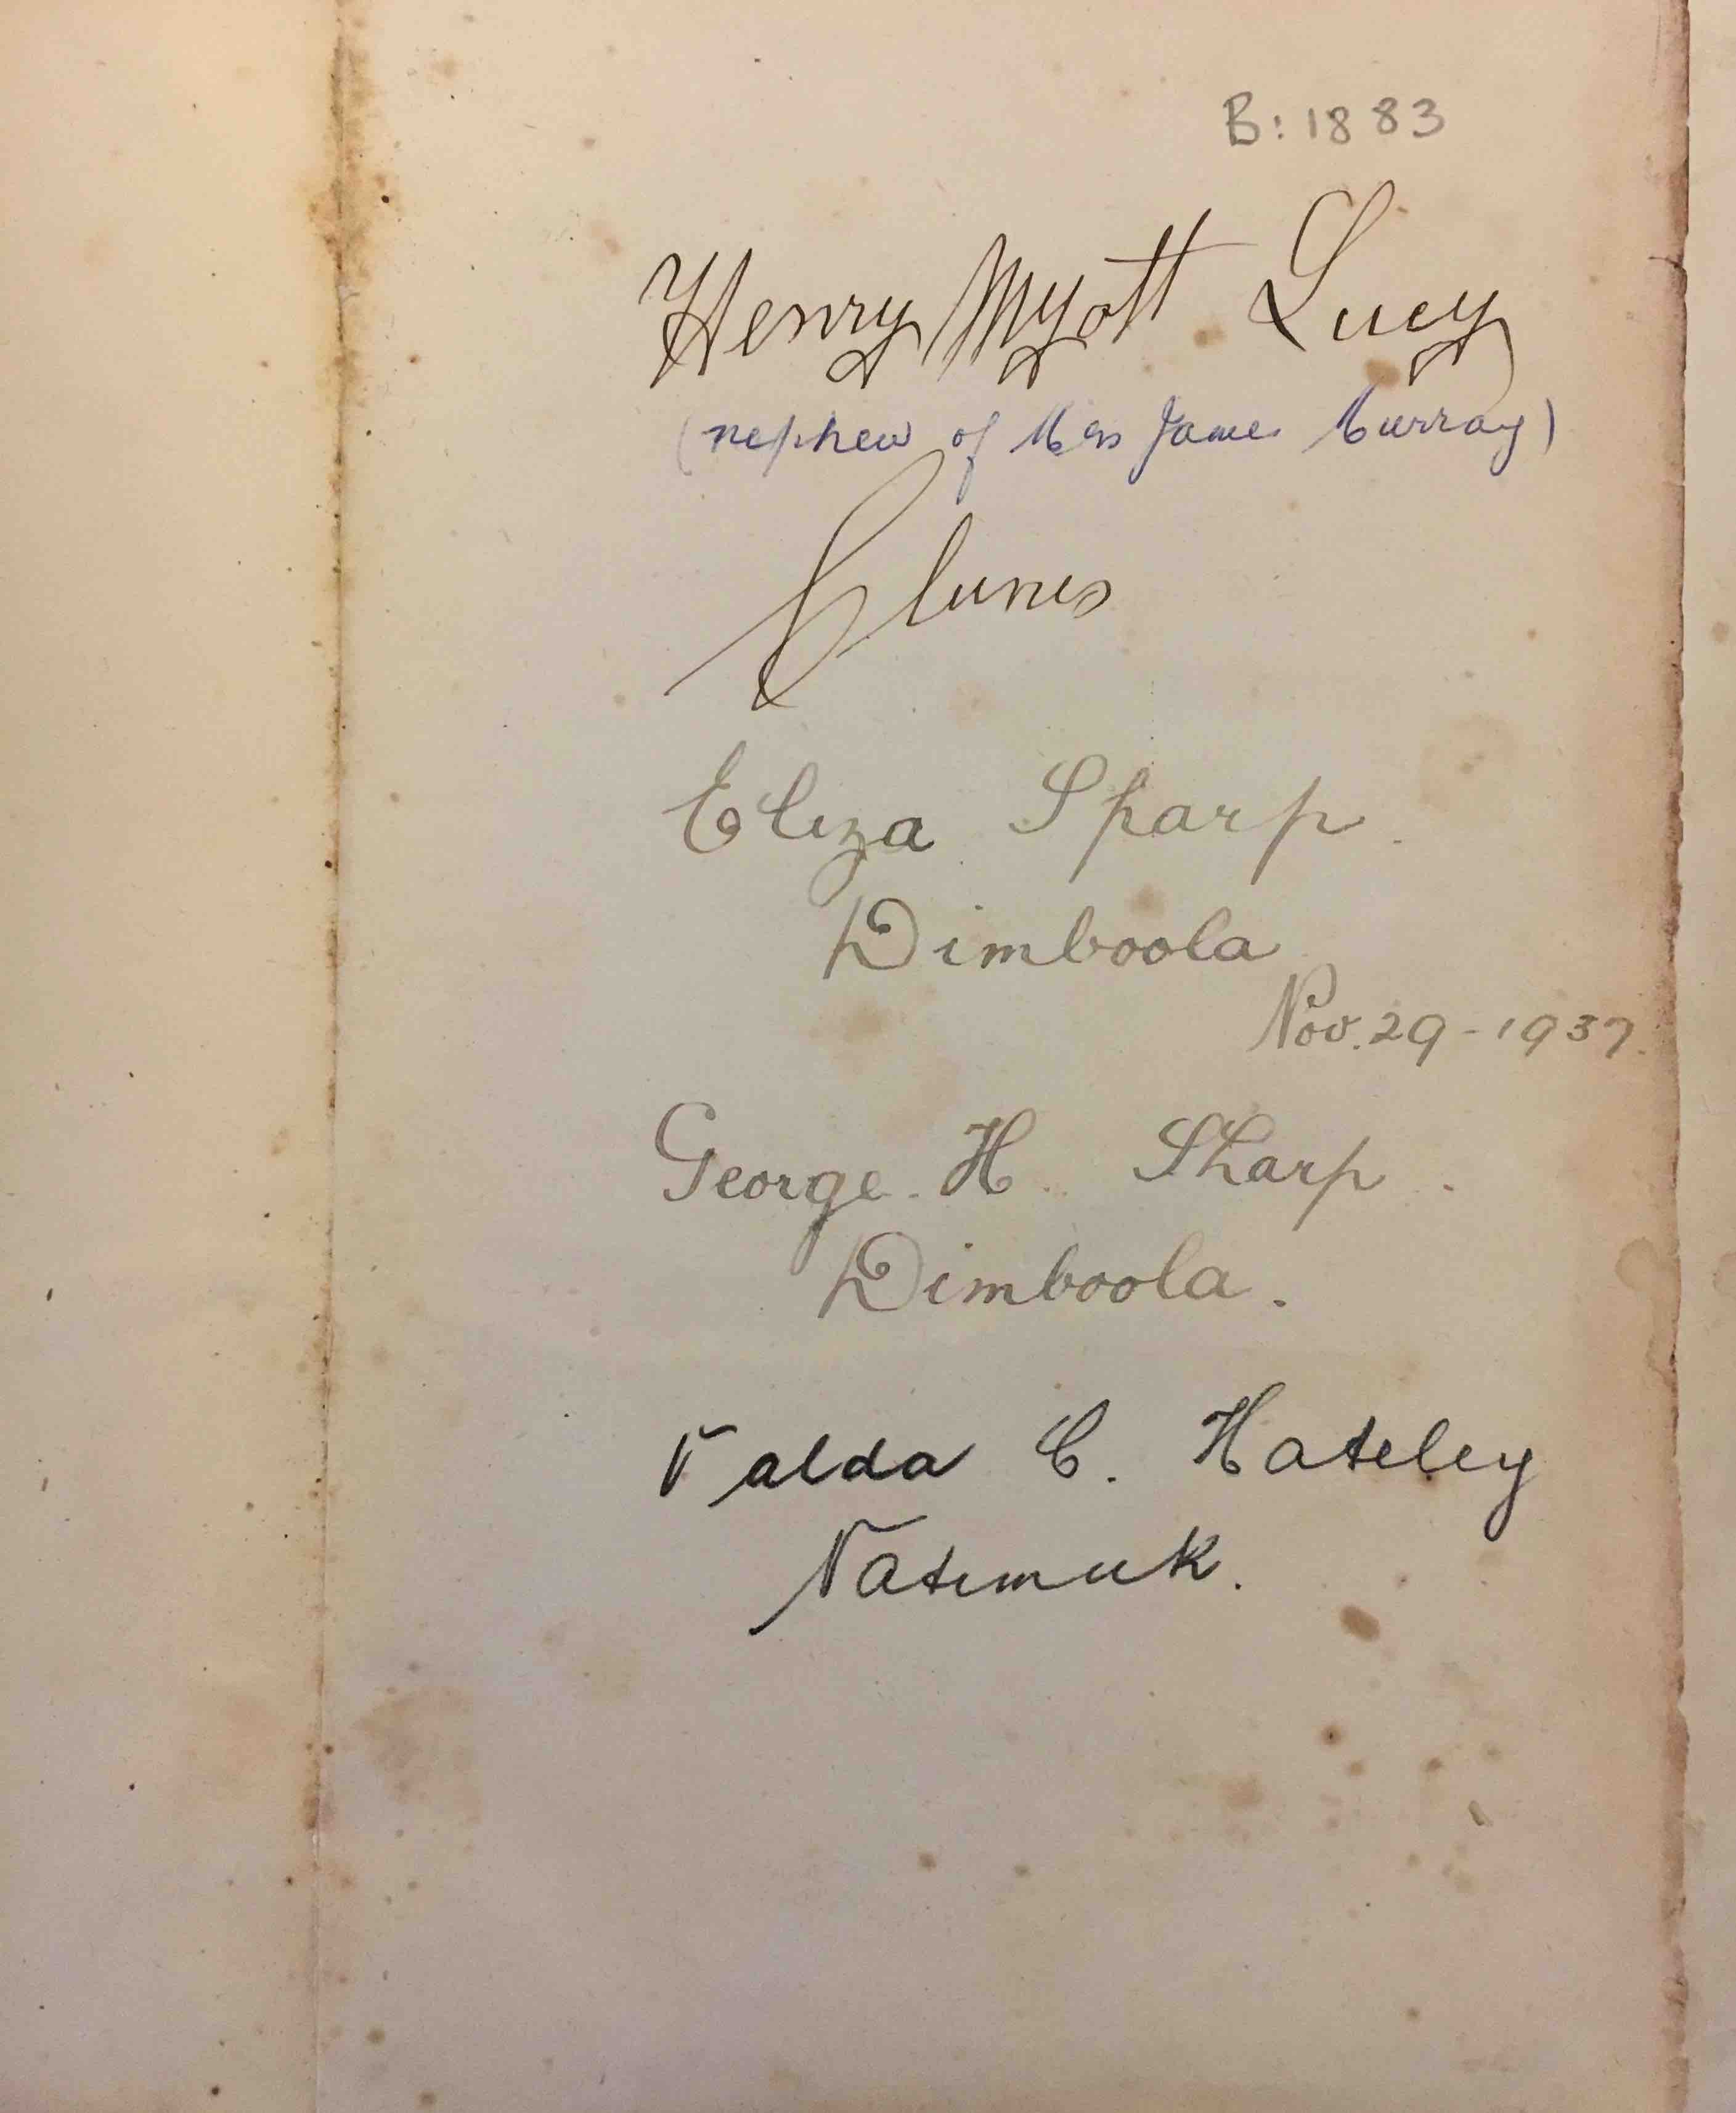 B: 1883
Henry Myott Lucy
(nephew of Mrs James Murray)
Clunes
Eliza Sharp.
Dimboola
Nov. 29 - 1937.
George. H. Sharp.
Dimboola.
Valda C. Hateley
Natimuk.